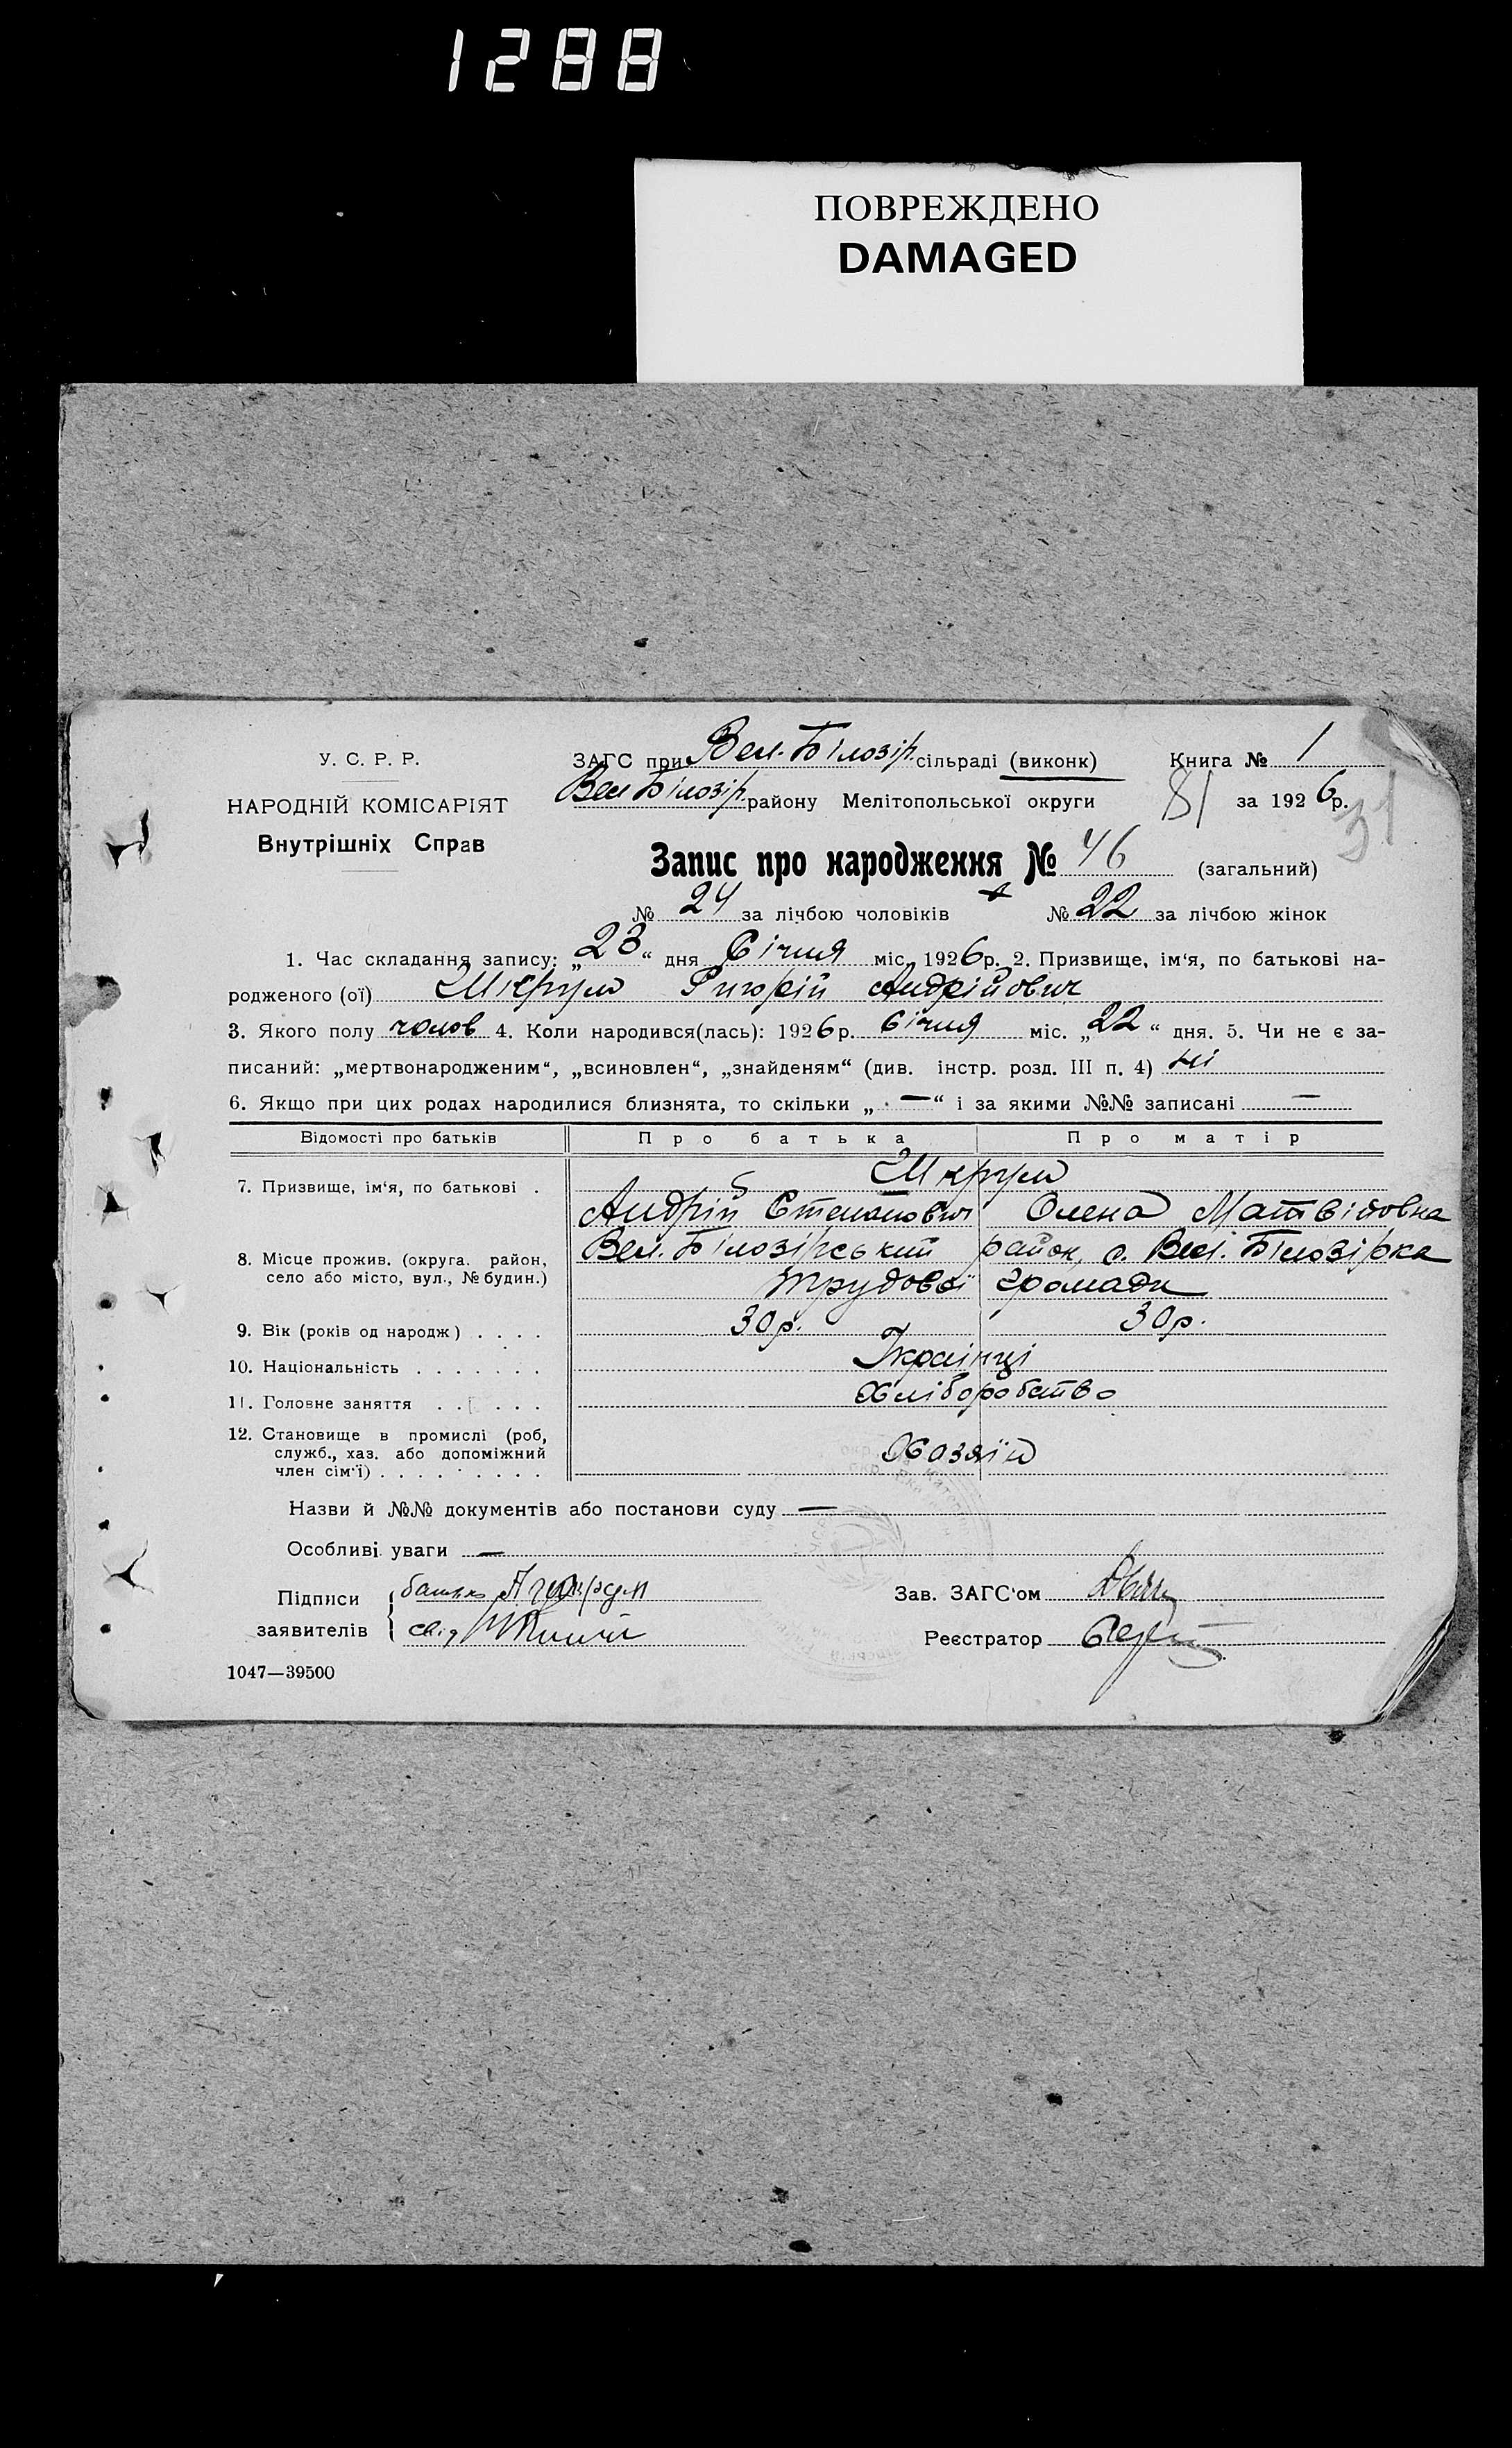 1288
ПОВРЕЖДЕНО
DAMAGED
У. С. Р. Р.
НАРОДНІЙ КОМІСАРІЯТ
Внутрішніх Справ
ЗАГС при Вел. Білозір. сільраді (виконк) Книга № 1
Вел Білозір. району Мелітопольської округи 81 за 1926 р. 31
Запис про народження № 46 (загальний)
№ 24 за лічбою чоловіків № 22 за лічбою жінок
1. Час складання запису: „23“ дня Січня міс. 1926 р. 2. Призвище, ім'я, по батькові на-
родженого (ої) Шкрум Андрійович
3. Якого полу чолов 4. Коли народився(лась): 1926 р. Січня міс. „22“ дня. 5. Чи не є за-
писаний: „мертвонародженим“, „всиновлен“, „знайденям“ (див. інстр. розд. III п. 4) Ні
6. Якщо при цих родах народилися близнята, то скільки „—“ і за якими №№ записані —
Відомості про батьків Про батька Про матір
7. Призвище, ім'я, по батькові . Шкрум
Андрій Степанович Олена Матвійовна
8. Місце прожив. (округа. район, село або місто, вул., № будин.) Вел. Білозірський район, с. Вел. Білозірка
Трудової громади
9. Вік (років од народж) . . . . 30 р. 30 р.
10. Національність . . . . . . . Україн­ці
11. Головне заняття . . . . . . Хліборобство
12. Становище в промислі (роб,
служб., хаз. або допоміжний
член сім'ї) . . . . . . . . . Хозяїн
Назви й №№ документів або постанови суду —
Особливі уваги —
Підписи батько
заявителів
Зав. ЗАГС'ом
Реєстратор
1047—39500